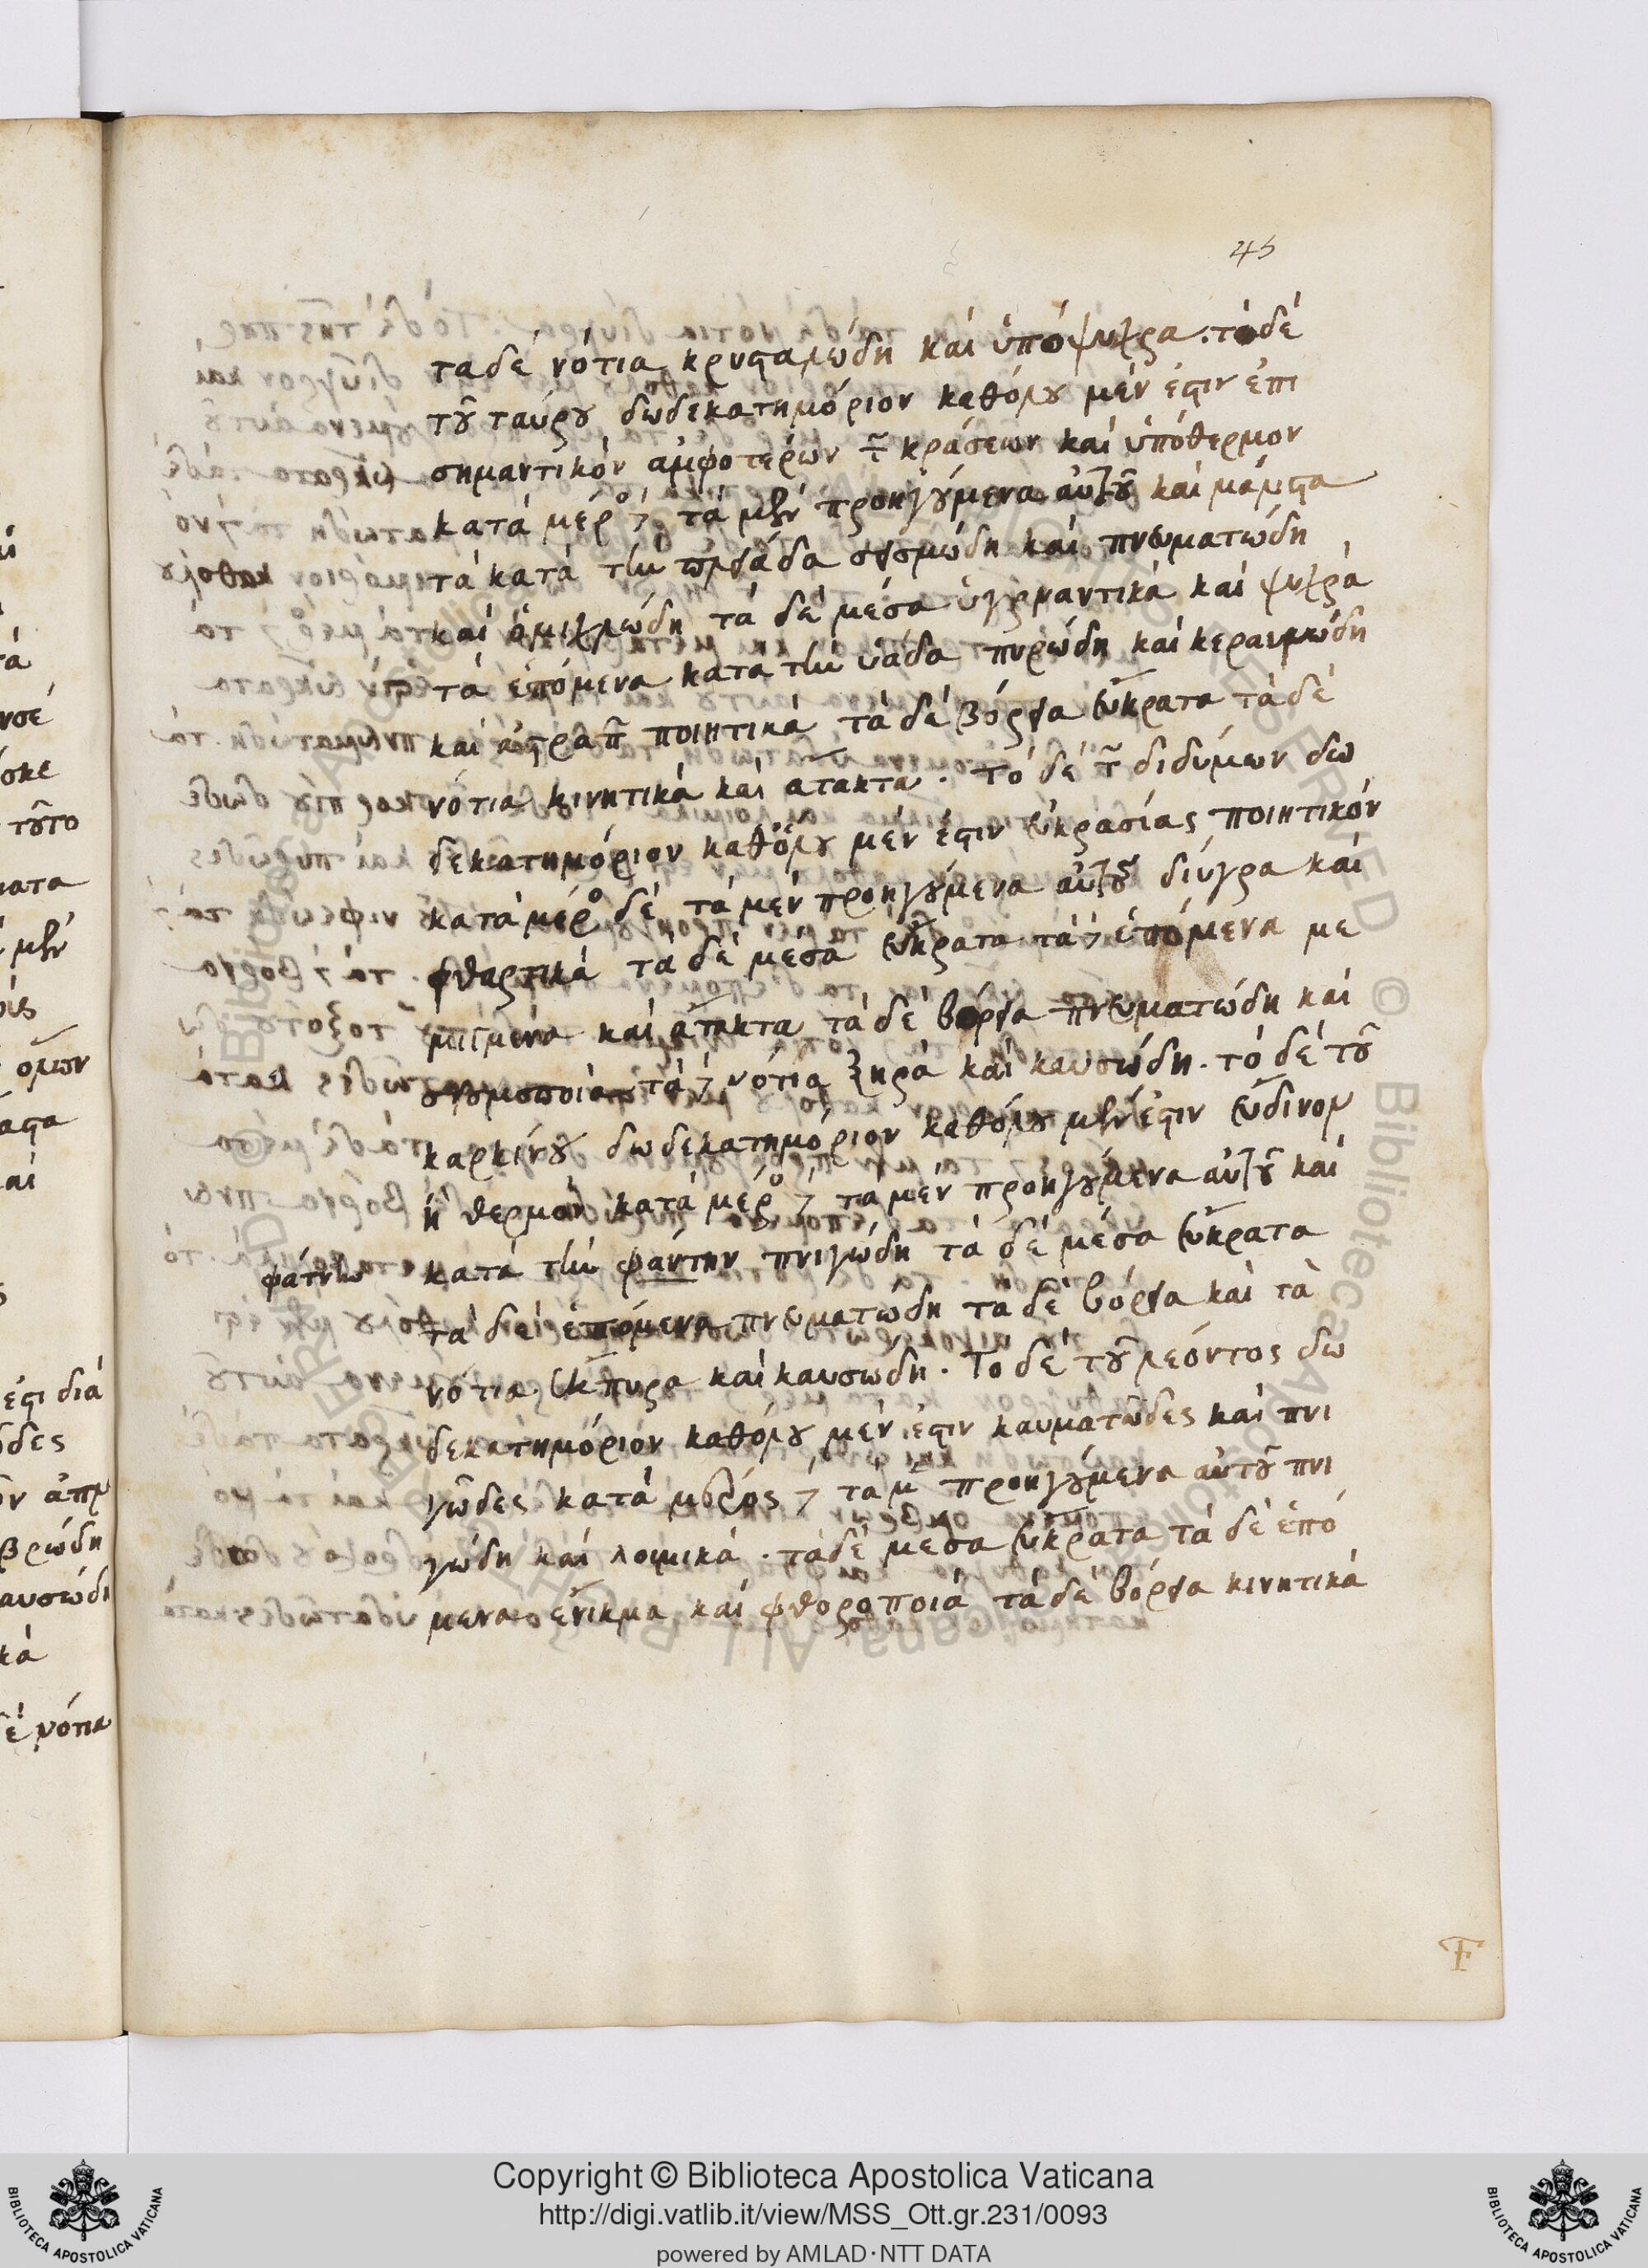 45
ταδέ νότια κρυσταλώδη καί ὑπόψυχρα. τὸ δέ
τοῦ ταύρου δωδεκατημόριον καθόλου μέν ἐστιν ἐπι
σημαντικόν ἀμφοτέρων τ̃ κράσεων καί ὑπόθερμον
κατά μέρο δέ τά μέν προηγούμενα αὐτοῦ καί μάλιστα
τά κατά τήν πλειάδα σεισμώδη καί πνευματώδη
καί ὁμιχλώδη τά δέ μέσα ὑγραντικά καί ψυχρά
τά ἑπόμενα κατα τήν ὑάδα πυρώδη καί κεραυνώδη
καί ἀστραπ̃ ποιητικά τά δέ βόρεια εὔκρατα τὰ δέ
νότια κινητικά καί ἄτακτα. τό δέ τ̃ διδύμων δω
δεκατημόριον καθόλου μέν ἐστιν εὐκρασίας ποιητικόν
κατά μέρο δέ τά μέν προηγούμενα αὐτοῦ δίυγρα καί
φθαρτικά τά δέ μέσα εὔκρατα τά δέ ἑπόμενα με
μιγμένα καί ἄτακτα τά δέ βόρεια πνευματώδη καί
τά δέ νότια ξηρά καί καυσώδη. τό δέ τοῦ
καρκίνου δωδεκατημόριον καθόλου μέν ἐστιν εὔδινον
ἤ θερμόν κατά μέρο δέ τα μέν προηγούμενα αὐτοῦ καί
φάτνην κατά τήν φάντην πνιγώδη τά δέ μέσα εὔκρατα
τά δέ ἑπόμενα πνευματώδη τά δέ βόρεια καί τὰ
νότια ἔκπυρα καί καυσώδη. Το δέ τοῦ λέοντος δω
δεκατημόριόν καθόλου μέν ἐστιν καυματῶδες καί πνι
γῶδες κατά μέρος δέ τά μ̃ προηγούμενα αὐτοῦ πνι
γώδη καί λοιμικά. τάδέ μέσα εὔκρατα τά δέ ἑπό
μενα ἔνικμα καί φθοροποιά τά δέ βόρεια κινητικά
Copyright © Biblioteca Apostolica Vaticana
http://digi.vatlib.it/view/MSS_Ott.gr.231/0093
powered by AMLAD·NTT DATA
BIBLIOTECA APOSTOLICA VATICANA
BIBLIOTECA APOSTOLICA VATICANA